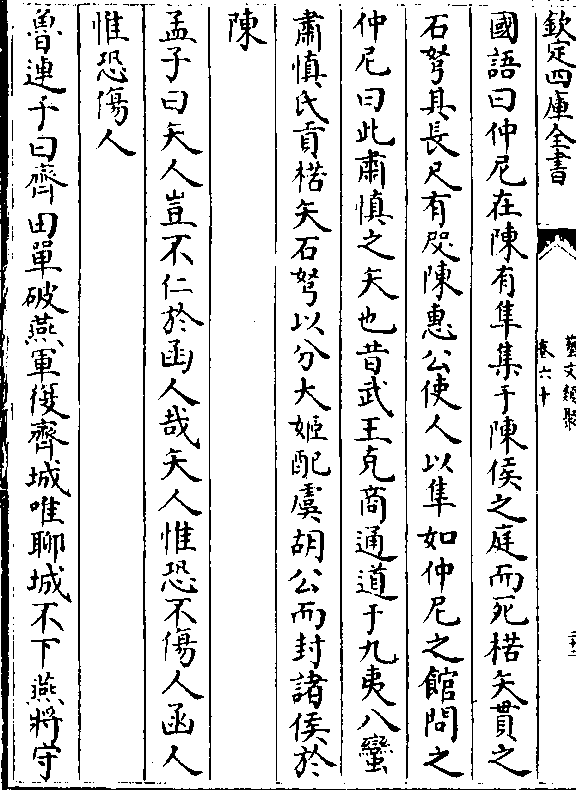 欽定四庫全書
藝文類聚
卷六十
國語曰仲尼在陳有隼集于陳侯之庭而死楛矢貫之
石弩其長尺有咫陳惠公使人以隼如仲尼之館問之
仲尼曰此肅慎之矢也昔武王克商通道于九夷八蠻
肅慎氏貢楛矢石弩以分大姬配虞胡公而封諸侯於
陳
孟子曰矢人豈不仁於函人哉矢人惟恐不傷人函人
惟恐傷人
魯連子曰齊田單破燕軍復齊城唯聊城不下燕將守